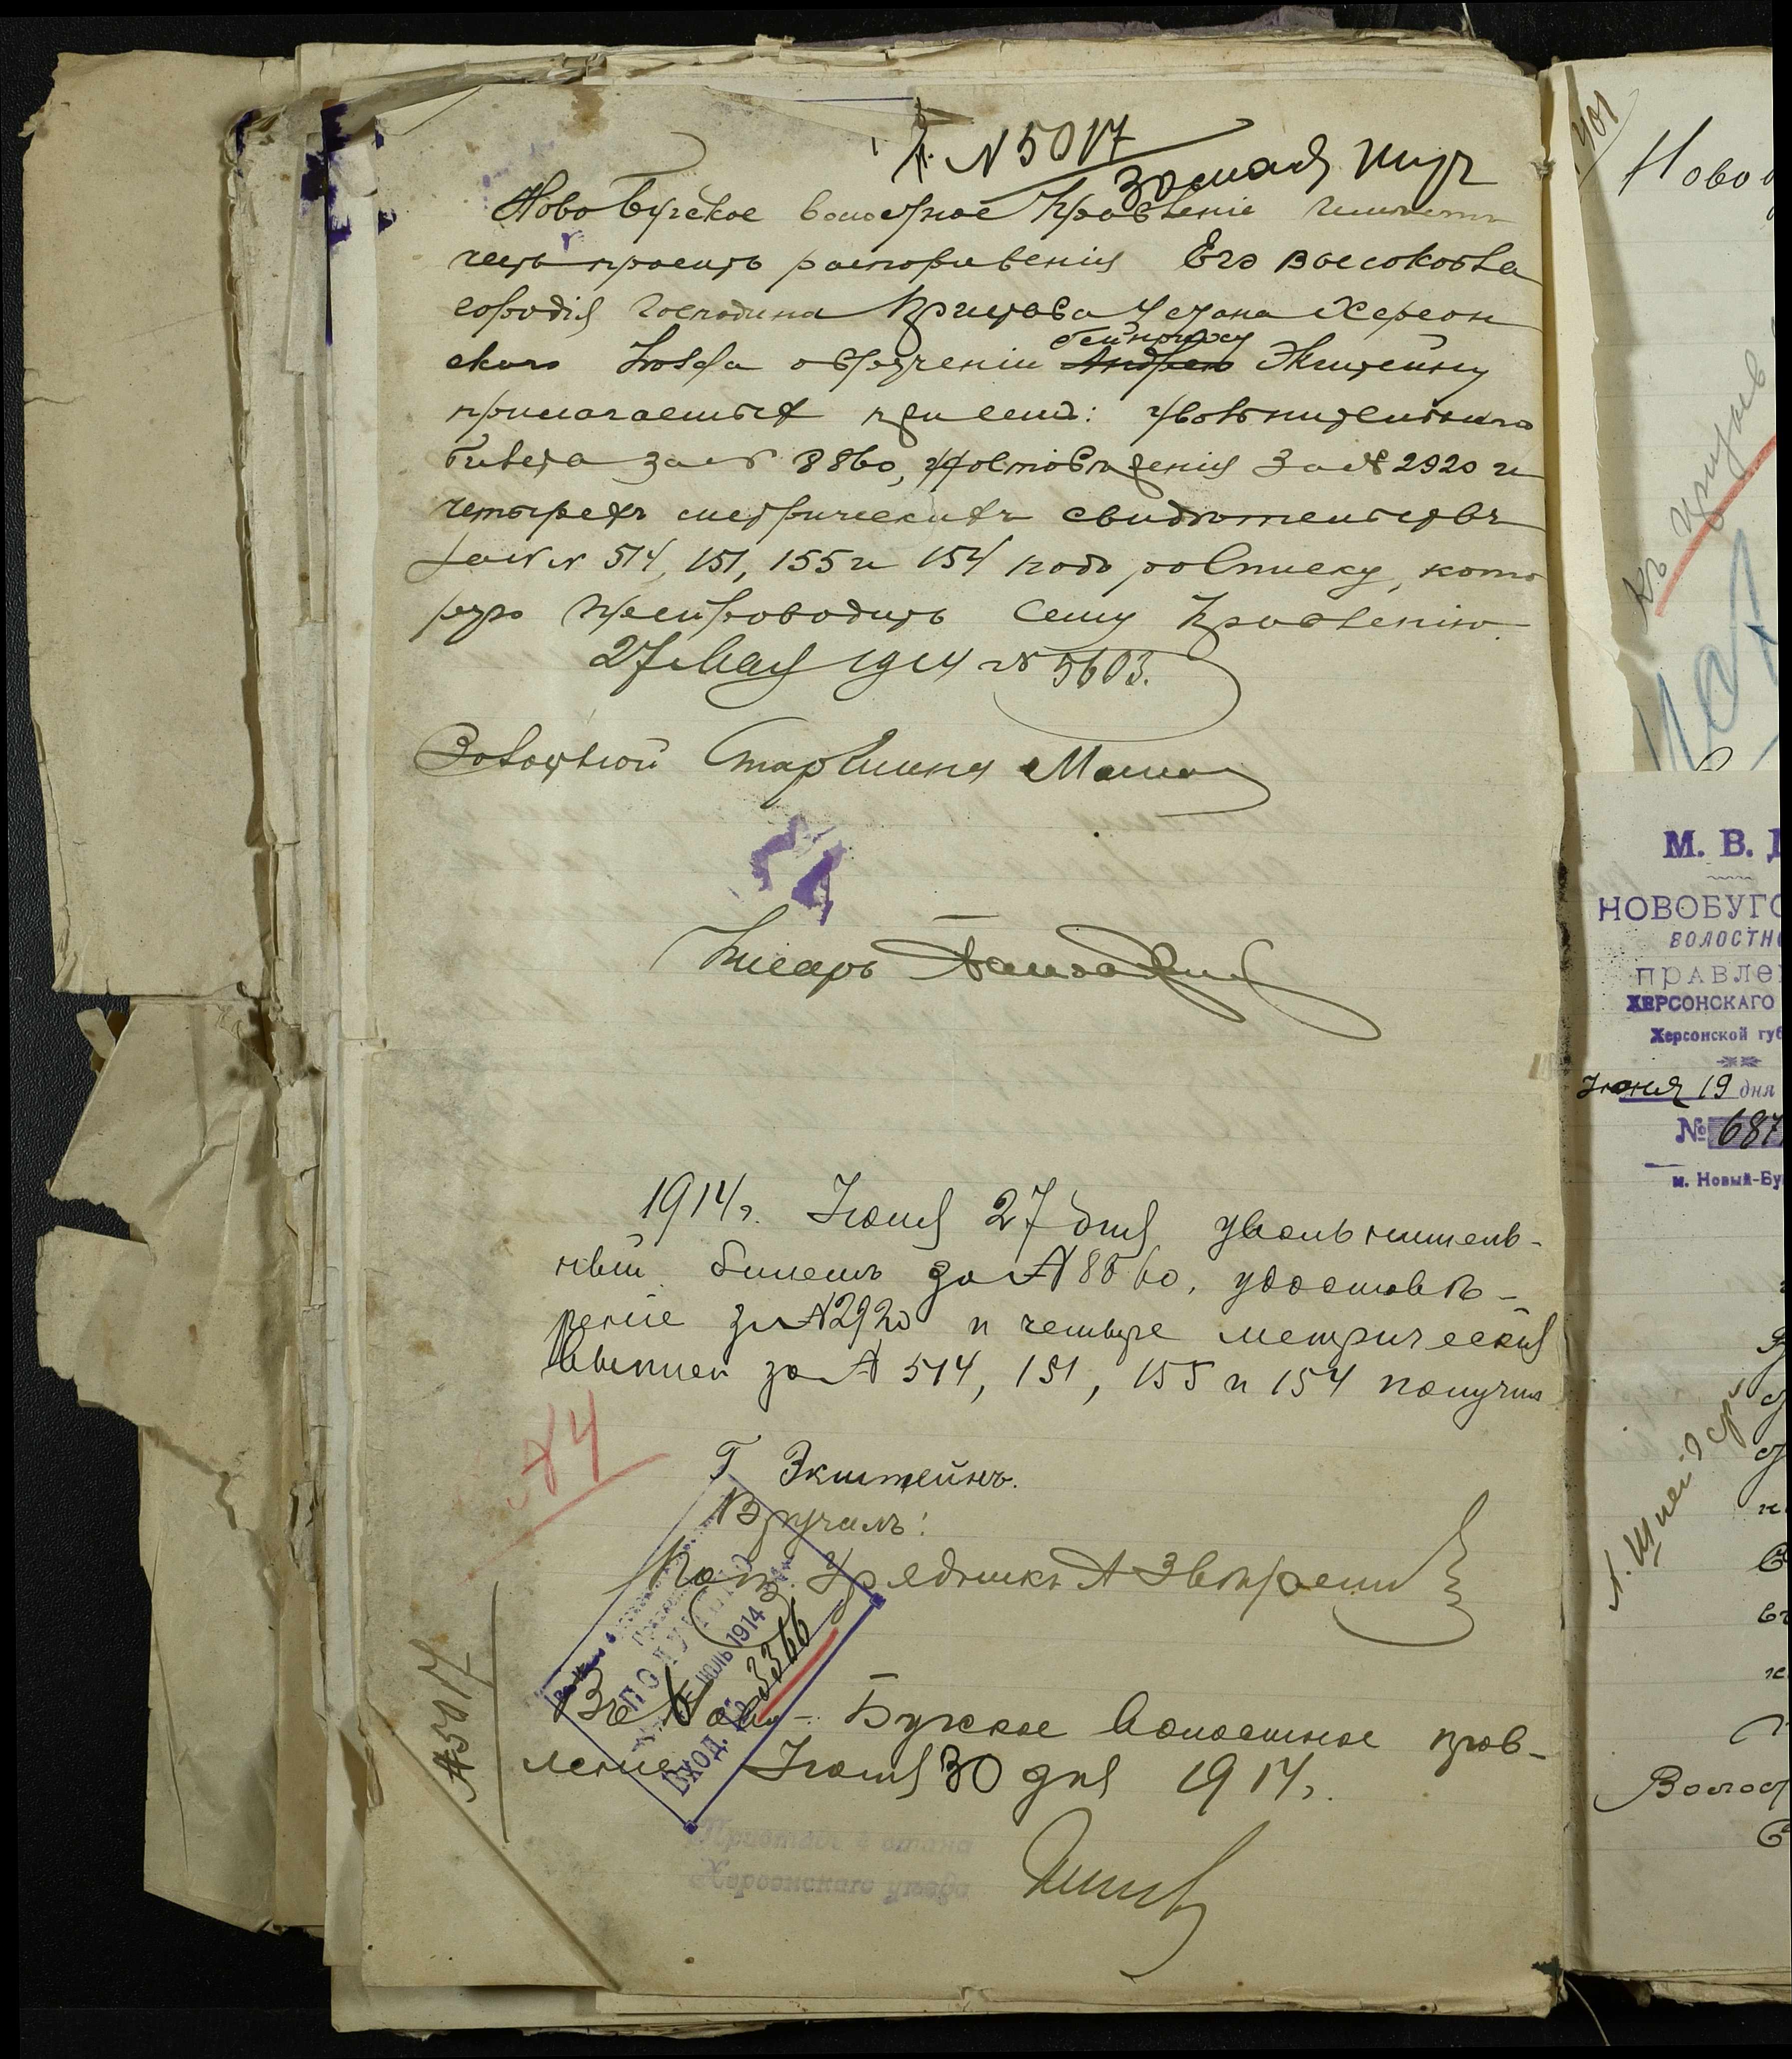 № 5017
Ново Бугское волостное Правленіе имѣетъ
честь просить распоряженія Его Высокобла
городія Господина Пристава 4 стана Херсон
скаго уѣзда о врученіи Андрею Экштейну
прилагаемыхъ при семъ: увольнительнаго
билета за № 8860, удостовѣренія за № 2920 и
четырехъ метрическихъ свидѣтельствъ
за №№ 514, 151, 155 и 154 подъ росписку, кото
рую препроводить сему Правленію.
27 Мая 1914 № 5603.
Волостной Старшина
Писарь
1914 г. Іюня 27 дня увольнитель-
ный билетъ за № 8860, удостовѣ-
реніе за № 2920 и четыре метрическія
выписи за № 514, 151, 155 и 154 получилъ
Г Экштейнъ.
Вручилъ:
Урядникъ
ПОЛУЧЕНО
ІЮЛЬ 1914
ВХОД. № 3366
Въ Ново-Бугское волостное прав-
леніе Іюня 30 дня 1914 г.
Приставъ 4 стана
Херсонскаго уѣзда
№ 5017
№ 4
401
Ново
М. В. Д
НОВОБУГС
ВОЛОСТНО
ПРАВЛЕ
ХЕРСОНСКАГО
Херсонской губ
Іюня 19 дня
№ 687
м. Новый-Бу
Волост